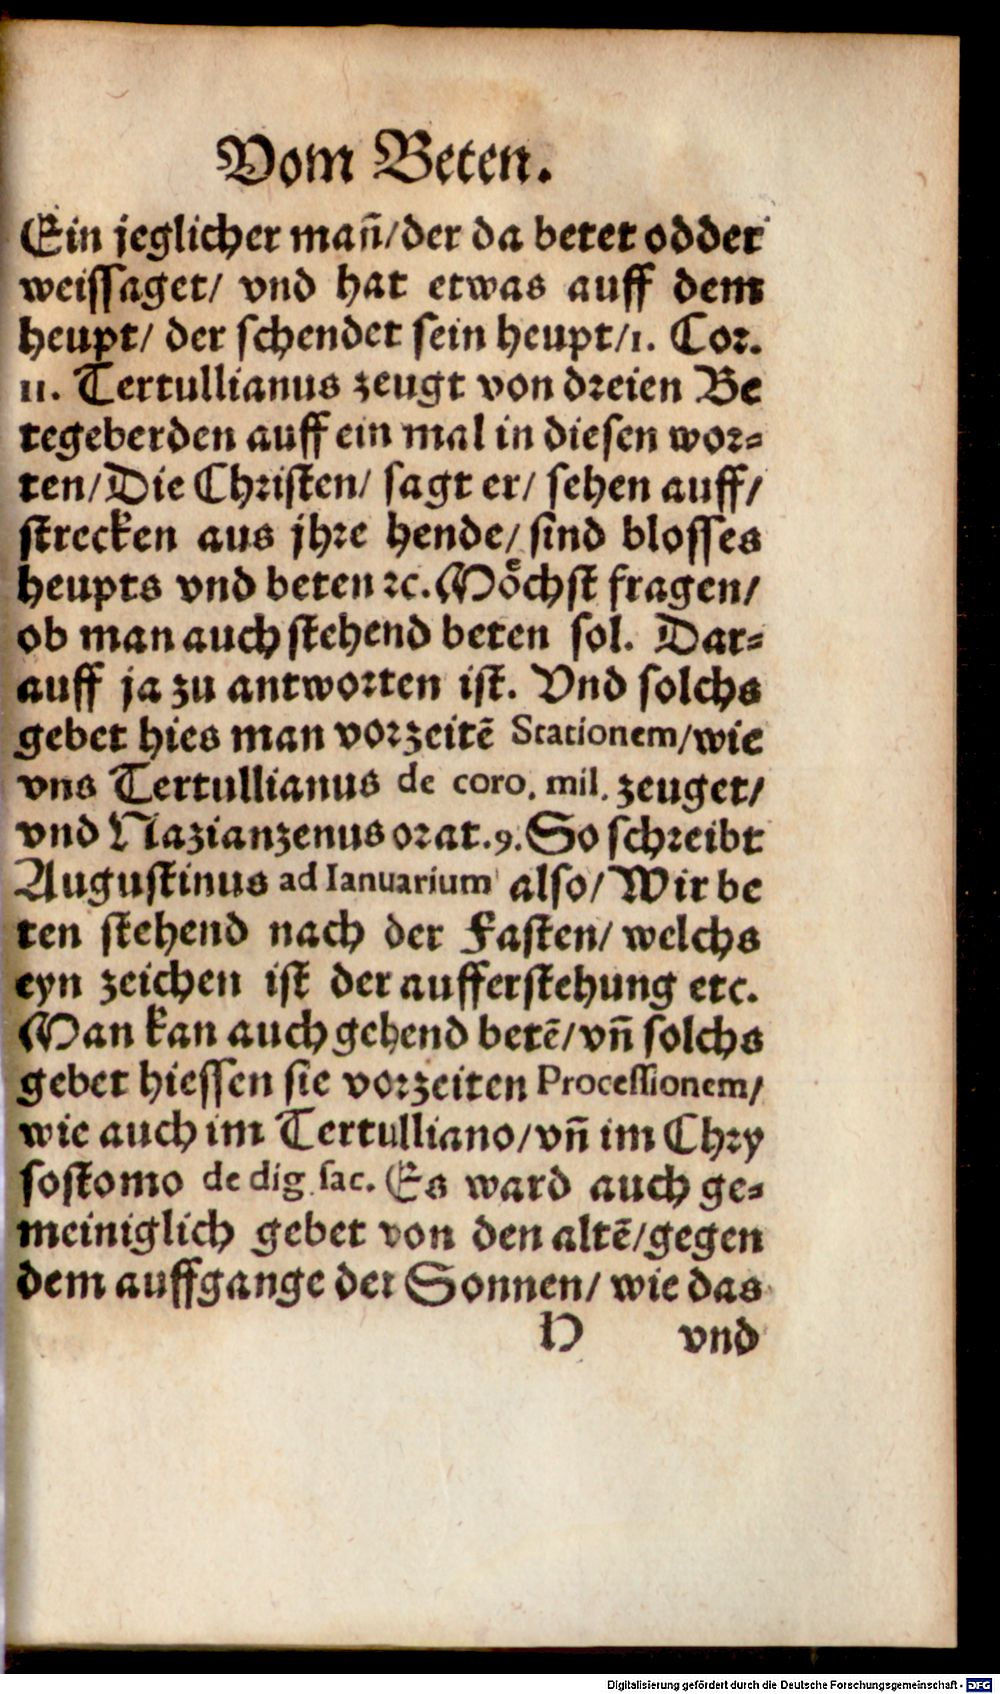 Vom Beten.
Ein jeglicher mañ/der da betet odder
weissaget/ vnd hat etwas auff dem
heupt/ der schendet sein heupt/1. Cor.
11. Tertullianus zeugt von dreien Be
tegeberden auff ein mal in diesen wor⸗
ten/Die Christen/ sagt er/ sehen auff/
strecken aus jhre hende/ sind blosses
heupts vnd beten ꝛc. Moͤchst fragen/
ob man auch stehend beten sol. Dar⸗
auff ja zu antworten ist. Vnd solchs
gebet hies man vorzeitē Stationem/wie
vns Tertullianus de coro. mil. zeuget/
vnd Nazianzenus orat.9. So schreibt
Augustinus ad Ianuarium also/ Wir be
ten stehend nach der Fasten/ welchs
eyn zeichen ist der aufferstehung etc.
Man kan auch gehend betē/vñ solchs
gebet hiessen sie vorzeiten Processionem/
wie auch im Tertulliano/vñ im Chry
sostomo de dig. sac. Es ward auch ge⸗
meiniglich gebet von den altē/gegen
dem auffgange der Sonnen/ wie das
H vnd
Digitalisierung gefördert durch die Deutsche Forschungsgemeinschaft - DFG